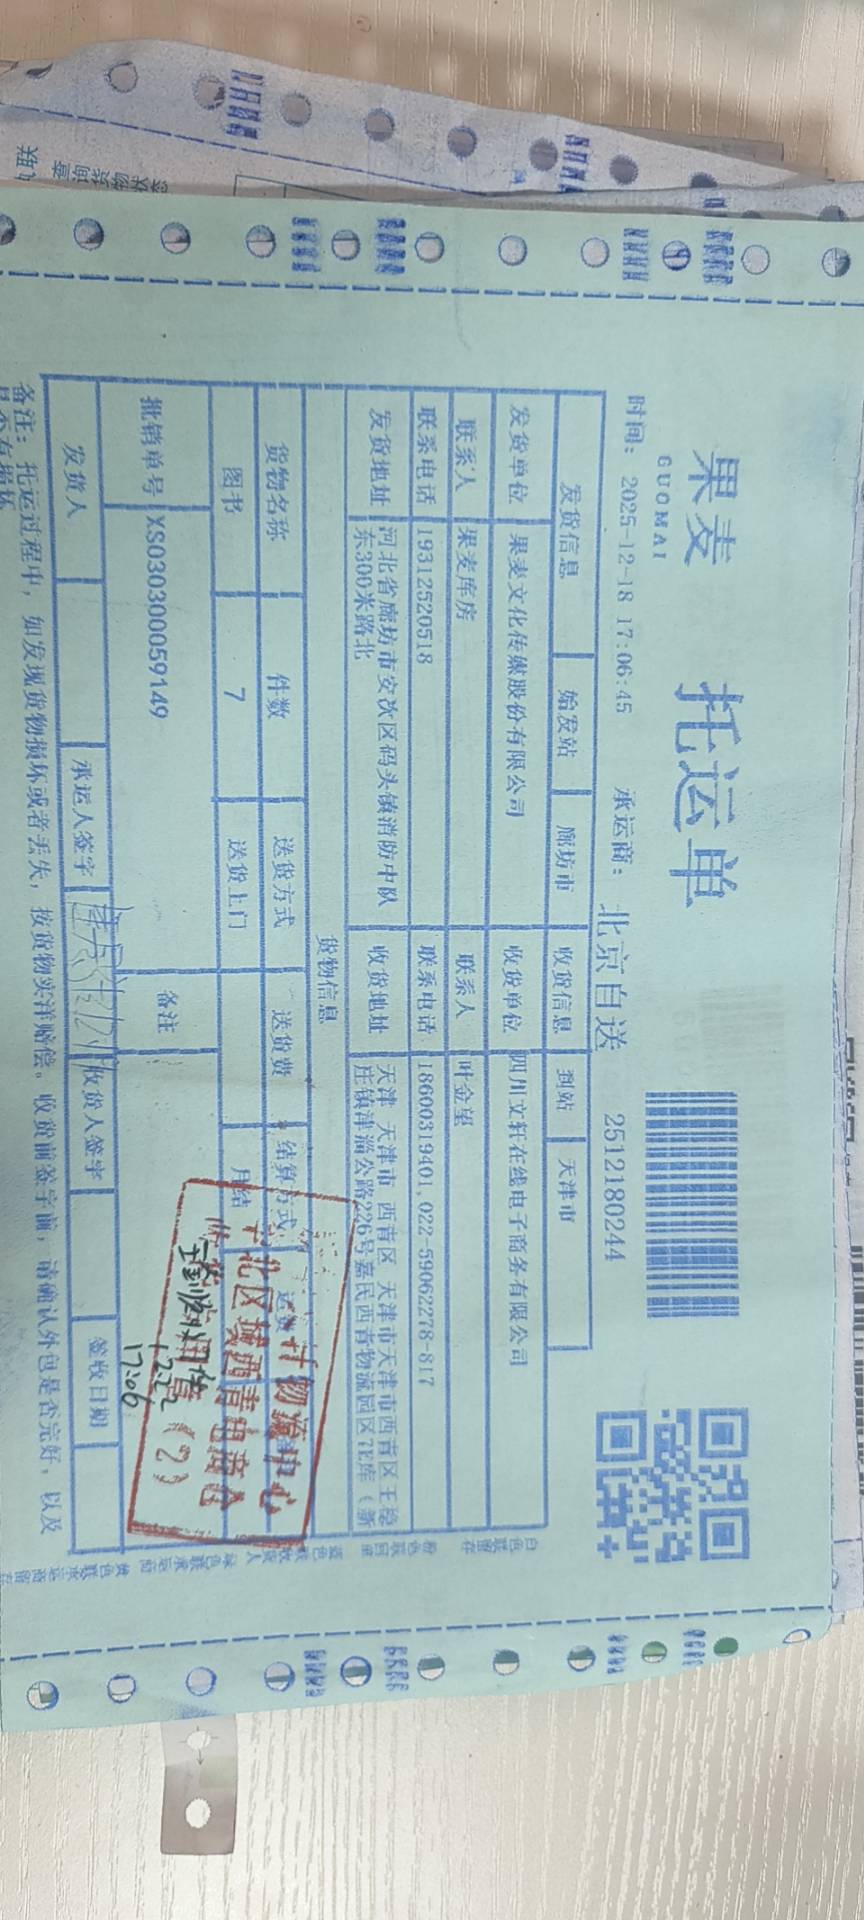 联
查询货物状态
果麦
GUOMAI
托运单
时间: 2025-12-18 17:06:45
承运商: 北京自送
2512180244
发货信息 始发站 廊坊市 收货信息 到站 天津市
发货单位 果麦文化传媒股份有限公司 收货单位 四川文轩在线电子商务有限公司
联系人 果麦库房 联系人 叶金望
联系电话 19312520518 联系电话 18600319401,022-59062278-817
发货地址 河北省廊坊市安次区码头镇消防中队
东300米路北
收货地址 天津 天津市 西青区 天津市天津市西青区王稳
庄镇津淄公路226号嘉民西青物流园区7E库(新
货物信息
货物名称 件数 送货方式 送货费 结算方式 运费
图书 7 送货上门 月结
批销单号 XS030300059149 备注
物流中心
华北区域西青电商仓
收货专用章(2)
12.22
17:06
发货人 承运人签字 收货人签字 签收日期
备注: 托运过程中, 如发现货物损坏或者丢失, 按货物实洋赔偿。收货前签字前, 请确认外包是否完好, 以及
是否有损坏